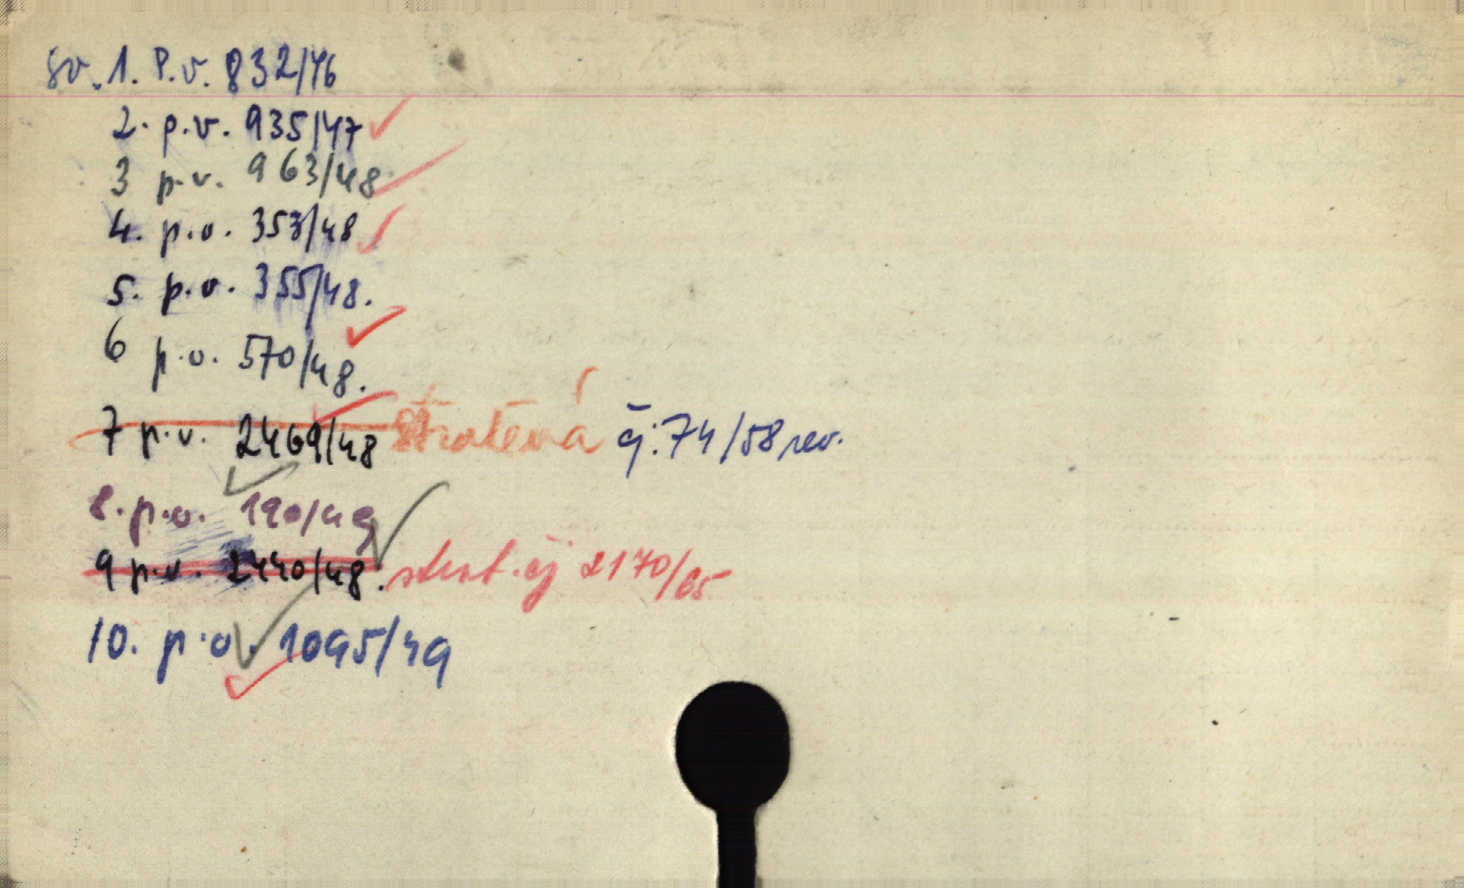 sv. 1. P.v. 832/46
2. p.v. 935/47
3 p.v. 963/48
4. p.v. 353/48
5. p.v. 355/48.
6 p.v. 570/48.
7 p.v. 2469/48 stratená čj. 74/58 rev.
8. p.v. 190/49
9 p.v. 2440/48. strat. čj 2170/65
10. p.v. 1095/49